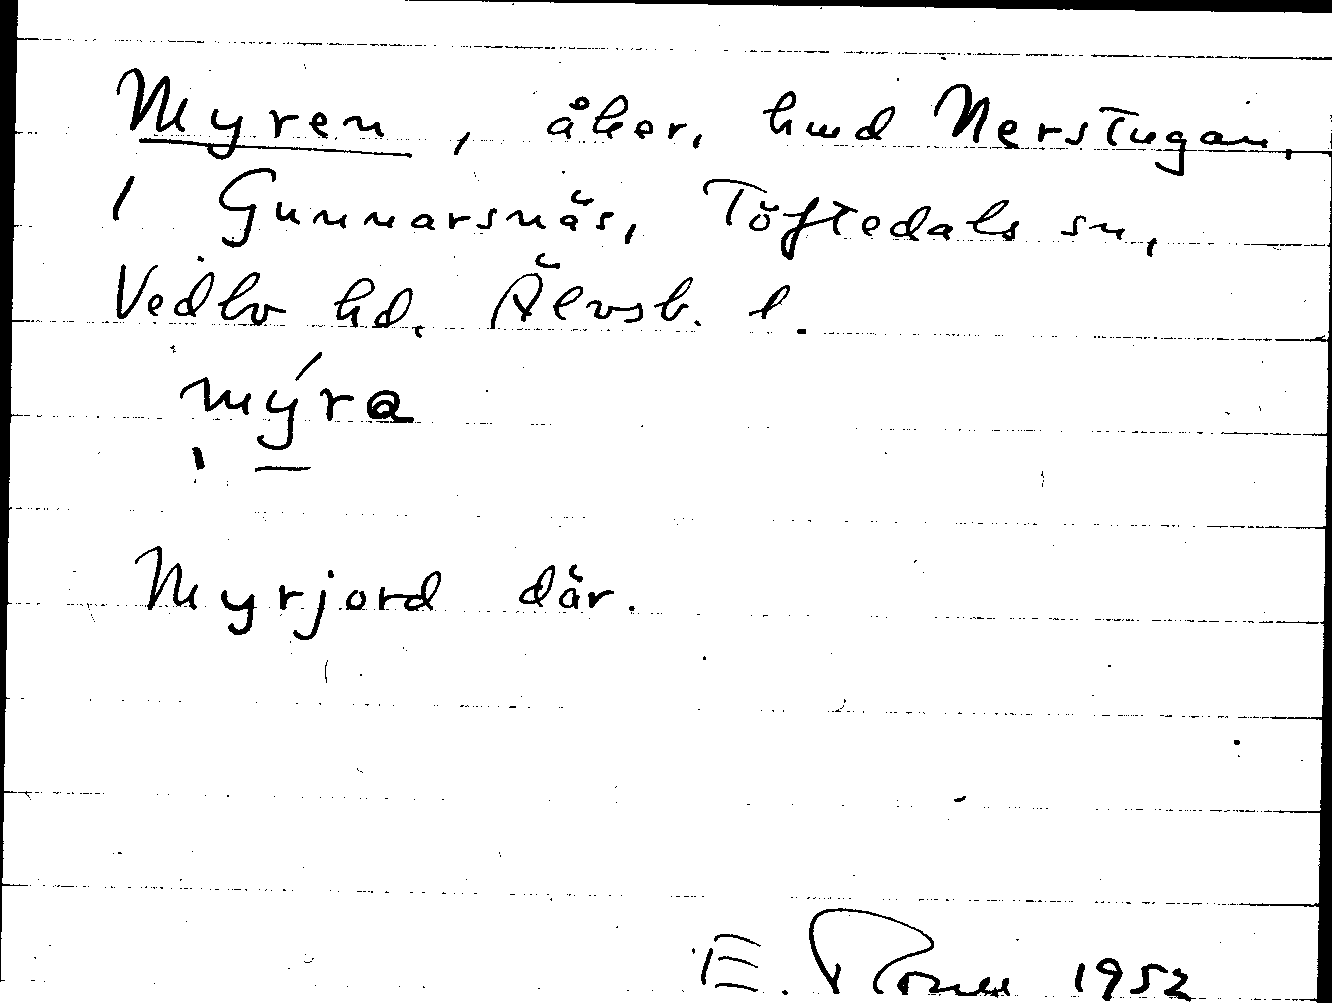 Myren, åker, hmd Nerstugan,
1 Gunnarsnäs, Töftedals sn,
Vedbo hd. Älvsb. l.
mýra
Myrjord där.
E. 1952